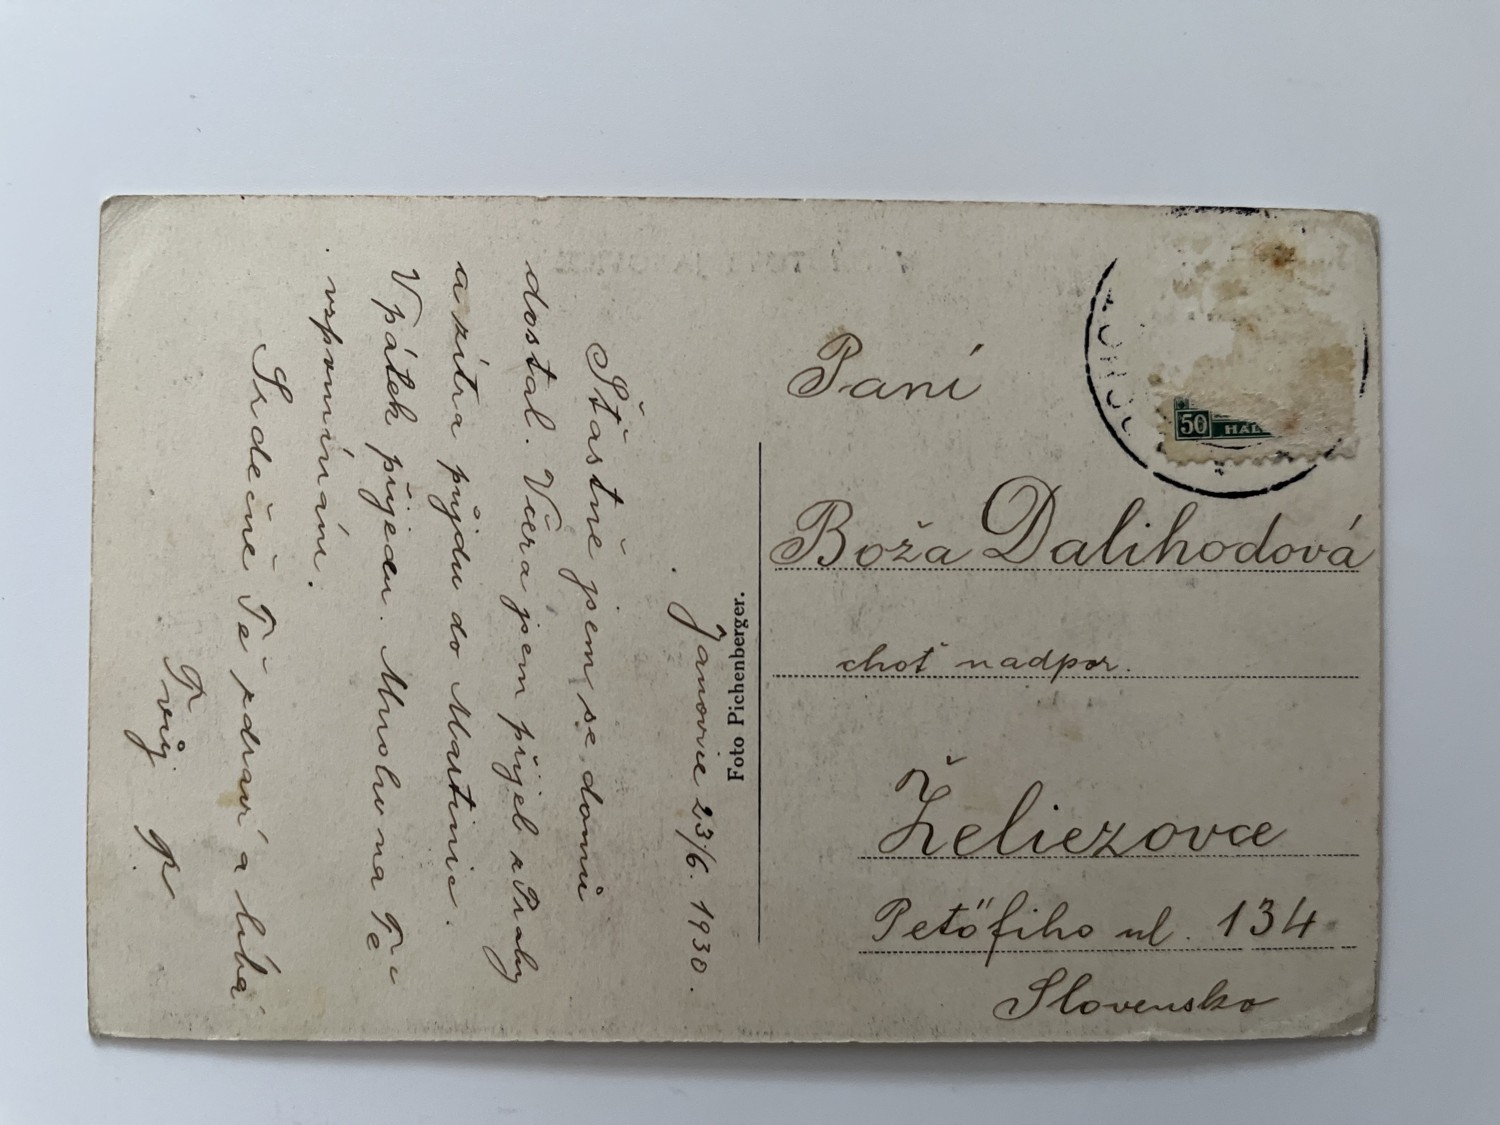 Janovice 23/6. 1930.
Šťastně jsem se domů
dostal. Včera jsem přijel z Prahy
a zítra půjdu do Martinic.
V pátek přijedu. Mnoho na Tě
vzpomínám.
Srdečně Tě zdraví a líbá
Tvůj
Foto Pichenberger.
50 HAL
Paní
Boža Dalihodová
choť nadpor.
Želiezovce
Petőfiho ul. 134
Slovensko